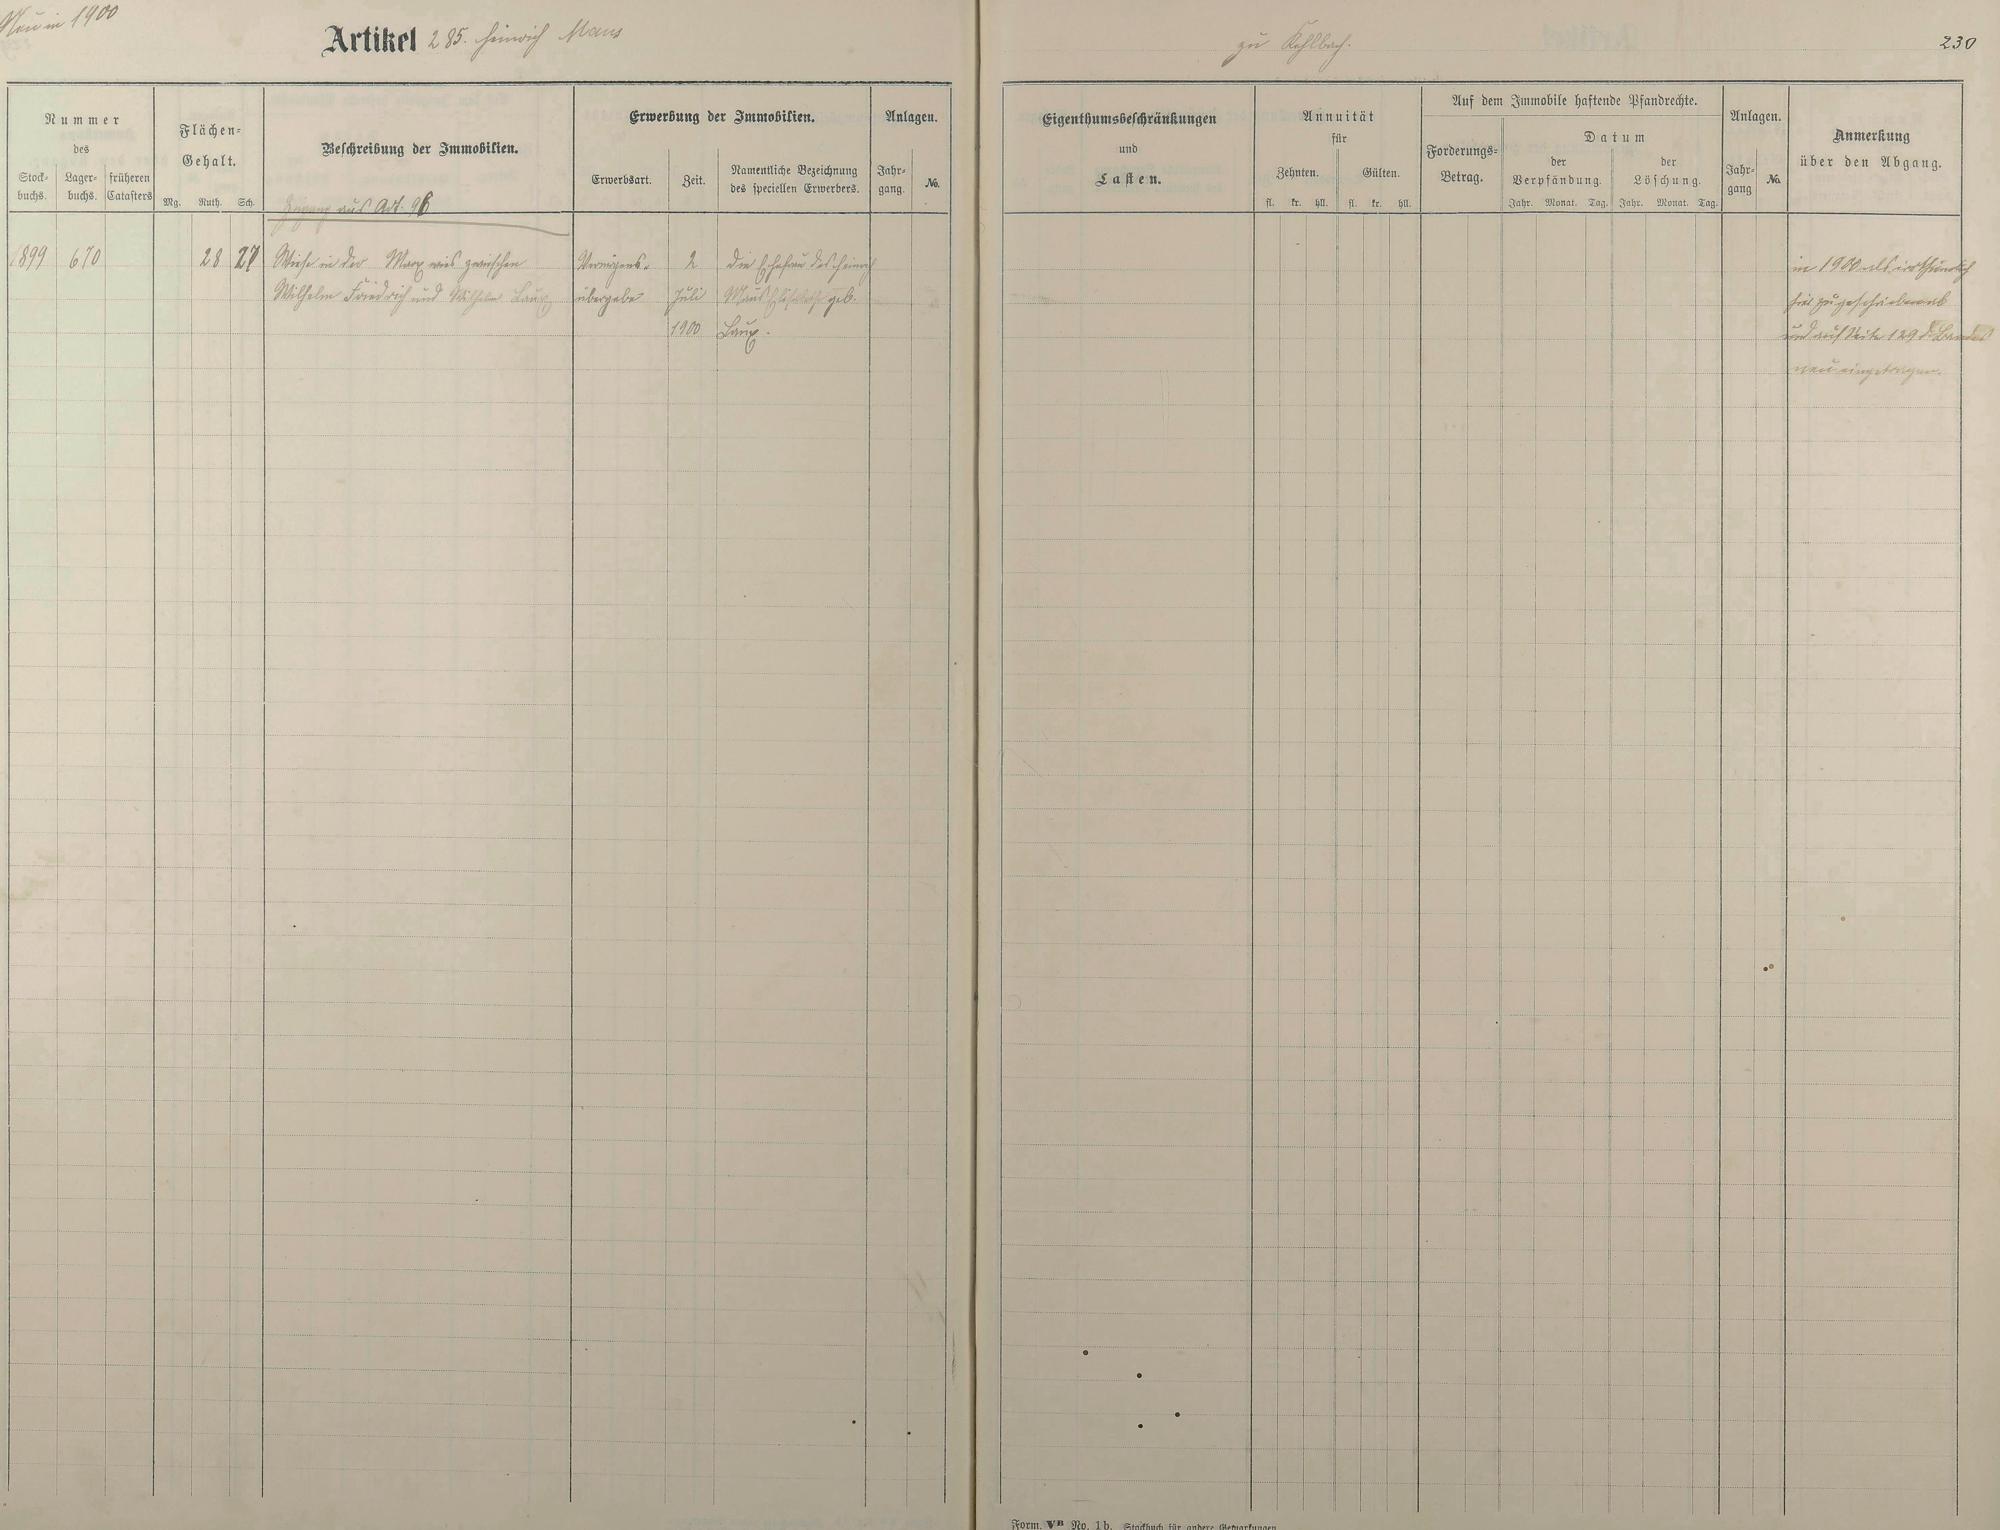 Neu in 1900
Artikel 285. Heinrich Maus
zu Kehlbach.
230
Nummer
des
Stock-
buchs.
Lager-
buchs.
früheren
Catasters
Flächen-
Gehalt.
Mg. Ruth. Sch.
Beschreibung der Immobilien.
Zugang aus Art. 96
Erwerbung der Immobilien.
Erwerbsart.
Zeit.
Namentliche Bezeichnung
des speciellen Erwerbers.
Anlagen.
Jahr-
gang.
No.
1899 670 28 27
Wiese in der Marxwies zwischen
Wilhelm Friedrich und Wilhelm Laux
Vermögens-
übergabe
2
Juli
1900
die Ehefrau des Heinrich
Maus Elisabeth geb.
Laux.
Eigenthumsbeschränkungen
und
Lasten.
Annuität
für
Zehnten.
Gülten.
fl. kr. hll. fl. kr. hll.
Auf dem Immobile haftende Pfandrechte.
Forderungs-
Betrag.
Datum
der
Verpfändung.
der
Löschung.
Jahr. Monat. Tag. Jahr. Monat. Tag.
Anlagen.
Jahr-
gang
No.
Anmerkung
über den Abgang.
in 1900 als irrthümlich
hier zugeschrieben ab
und auf Seite 129 d. Bandes
neu eingetragen.
Form. VB No. 1b. Stockbuch für andere Gemarkungen